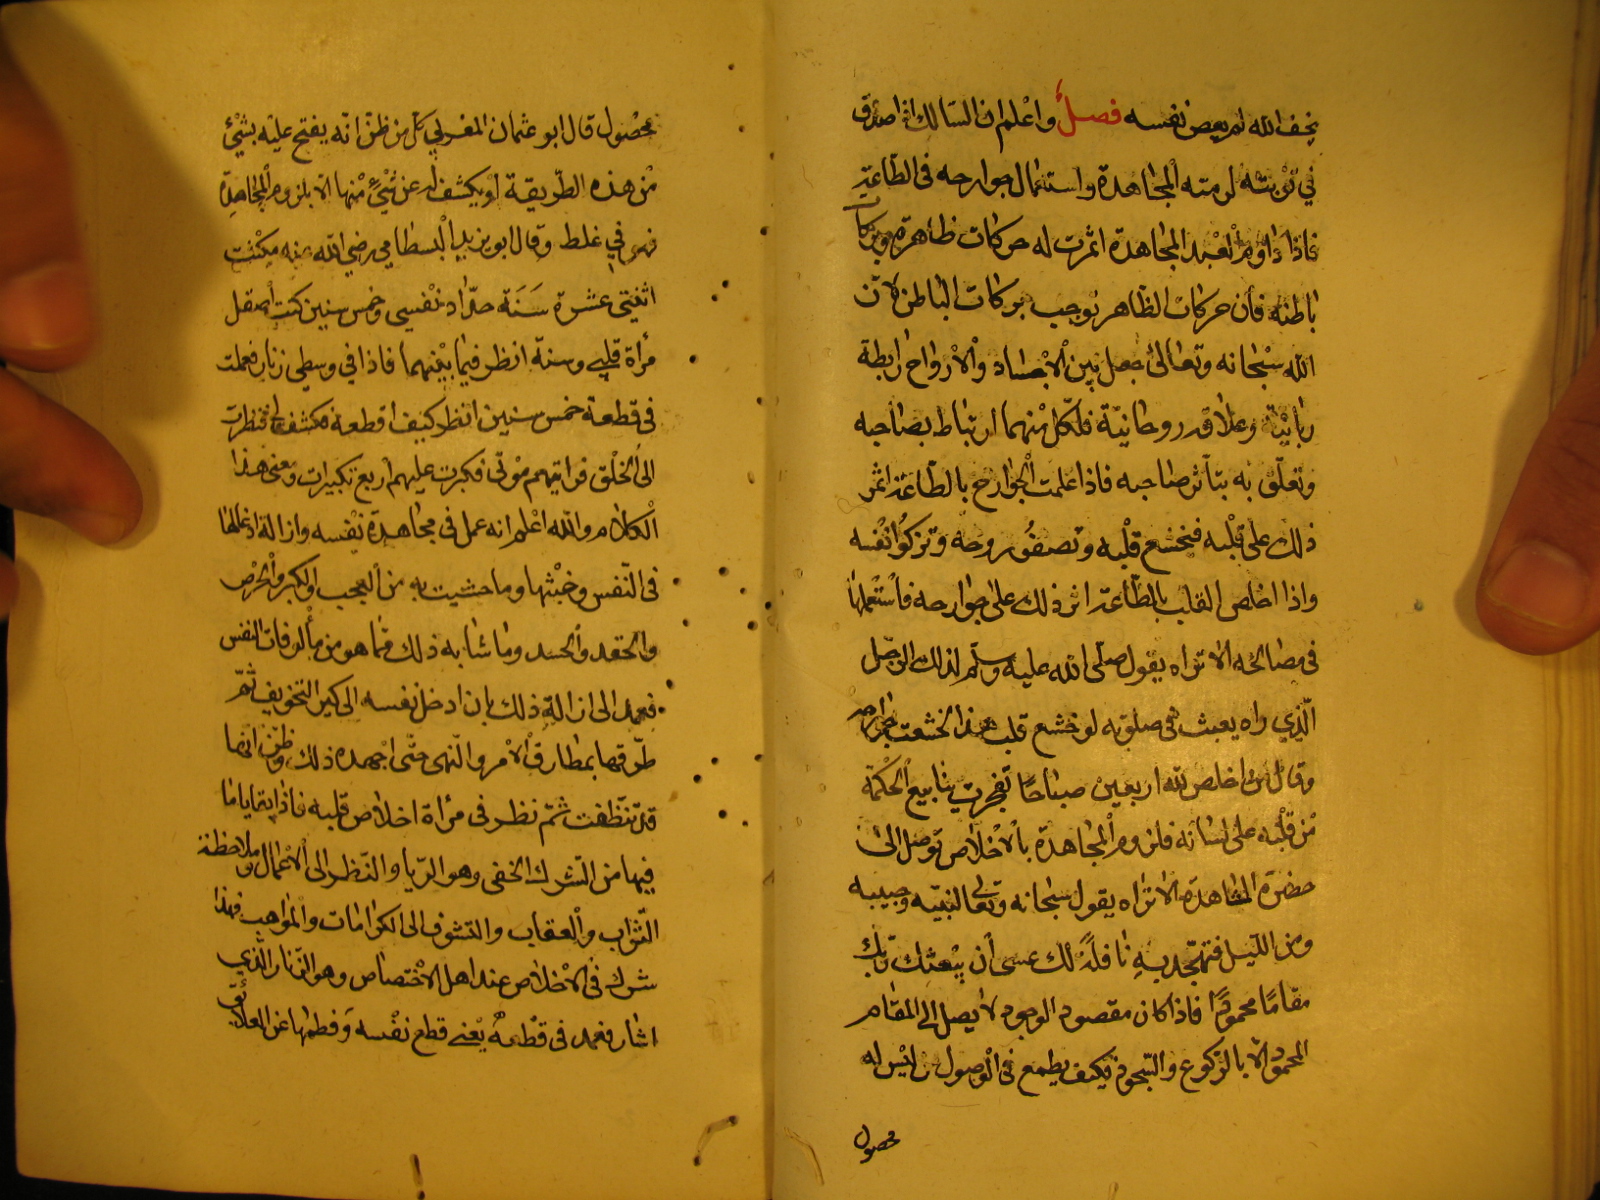 يخف الله لم يعص نفسه فصل واعلم ان السالك اذا صدق
في توبته لزمته المجاهدة واستعمال جوارحه في الطاعة
فاذا داوم العبد المجاهدة اثمرت له حركات ظاهرة وبركات
باطنه فان حركات الظاهر توجب بركات الباطن لان
الله سبحانه وتعالى جعل بين الاجساد والارواح رابطة
ربانية وعلاقة روحانية فلكل منهما ارتباط بصاحبه
وتعلق به يتأثر صاحبه فاذا عملت الجوارح بالطاعة اثر
ذلك على قلبه فيخشع قلبه وتصفو روحه وتزكوا نفسه
واذا اخلص القلب بالطاعة اثر ذلك على جوارحه فاستعملها
في مصالحه الا تراه يقول صلى الله عليه وسلم لذلك الرجل
الذي راه يعبث في صلوته لو خشع قلب هذا لخشعت جوارحه
وقال من اخلص لله اربعين صباحا تفجرت ينابيع الحكمة
من قلبه على لسانه فلزوم المجاهدة بالاخلاص توصل الى
حضرة المشاهدة الا تراه يقول سبحانه وتعالى لنبيه وحبيبه
ومن الليل فتهجد به نافلة لك عسى ان يبعثك ربك
مقاما محمودا فاذا كان مقصود الوجود لا يصل الى المقام
المحمود الا بالركوع والسجود فكيف يطمع في الوصول من ليس له
محصول
محصول قال ابو عثمان المغربي كل من ظن انه يفتح عليه بشئ
من هذه الطريقة او يكشف له عن شئ منها الا بلزوم المجاهدة
فهو في غلط وقال ابو يزيد البسطامي رضي الله عنه مكثت
اثنتي عشرة سنة حداد نفسي وخمس سنين كنت اصقل
مرأة قلبي وسنة انظر فيما بينهما فاذا في وسطي زنار فعملت
في قطعه خمس سنين انظر كيف اقطعه فكشف لي فنظرت
الى الخلق فرايتهم موتى فكبرت عليهم اربع تكبيرات ومعنى هذا
الكلام والله اعلم انه عمل في مجاهدة نفسه وازالة ادغالها
في النفس وخبثها وما حشيت به من العجب والكبر والحرص
والحقد والحسد وما شابه ذلك مما هو من مألوفات النفس
فعمد الى ازالة ذلك بان ادخل نفسه الى كير التخويف ثم
طرقها بمطارق الامر والنهى حتى اجهده ذلك وظن انها
قد تنظفت ثم نظر في مرأة اخلاص قلبه فاذا بقايا ما
فيها من الشرك الخفي وهو الريا والنظر الى الاعمال وملاحظة
الثواب والعقاب والتشوف الى الكرامات والمواهب فهذا
شرك في الاخلاص عند اهل الاختصاص وهو الزنار الذي
اشار فعمد في قطعه يعني قطع نفسه وفطمها عن العلائق